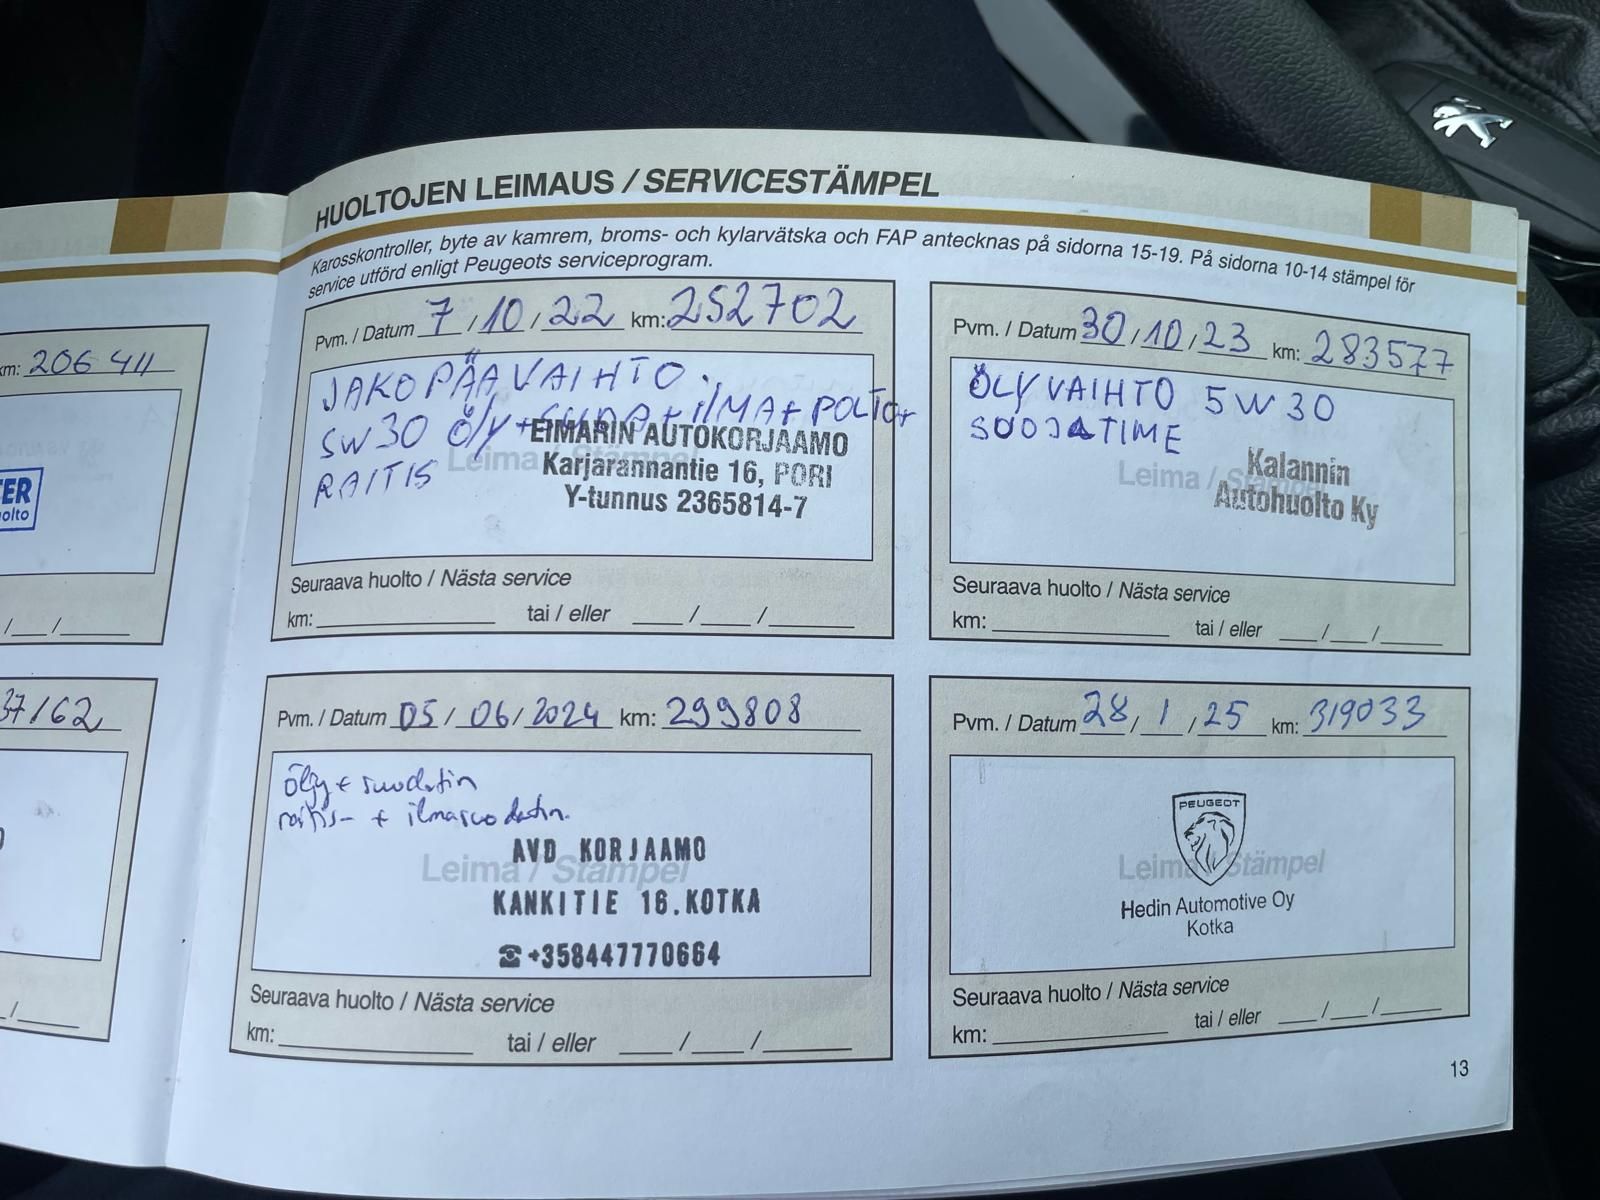 HUOLTOJEN LEIMAUS / SERVICESTÄMPEL
Karosskontroller, byte av kamrem, broms- och kylarvätska och FAP antecknas på sidorna 15-19. På sidorna 10-14 stämpel för
service utförd enligt Peugeots serviceprogram.
km: 206 411
ER
olto
37162
Pvm. / Datum 7 / 10 / 22 km: 252702
JAKOPÄÄVAIHTO.
5W30 ÖLJY + SUOD + ILMA + POLTO+
RAITIS
Leima / Stämpel
EIMARIN AUTOKORJAAMO
Karjarannantie 16, PORI
Y-tunnus 2365814-7
Seuraava huolto / Nästa service
km: tai / eller / /
Pvm. / Datum 30 / 10 / 23 km: 283577
ÖLYVAIHTO 5W30
SUODATIME
Leima / Stämpel
Kalannin
Autohuolto Ky
Seuraava huolto / Nästa service
km: tai / eller / /
Pvm. / Datum 05 / 06 / 2024 km: 299808
öljy + suodatin
raitis- + ilmasuodatin.
Leima / Stämpel
AVD KORJAAMO
KANKITIE 16.KOTKA
☎+358447770664
Seuraava huolto / Nästa service
km: tai / eller / /
Pvm. / Datum 28 / 1 / 25 km: 319033
PEUGEOT
Leima / Stämpel
Hedin Automotive Oy
Kotka
Seuraava huolto / Nästa service
km: tai / eller / /
13